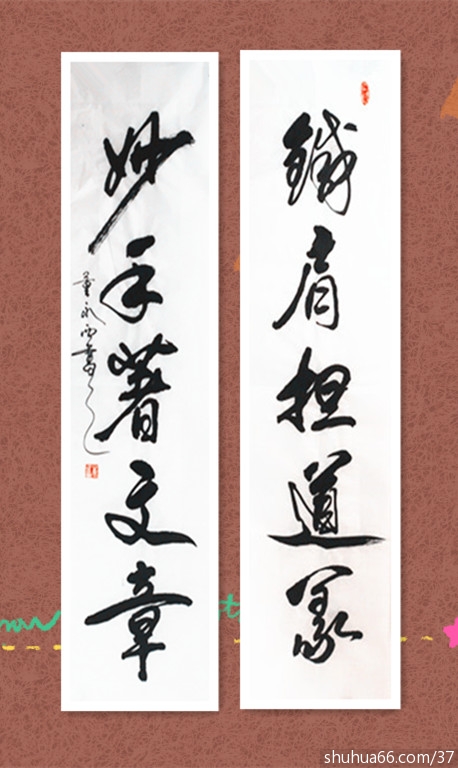 鐵肩担道義
妙手著文章
董永西書
shuhua66.com/37